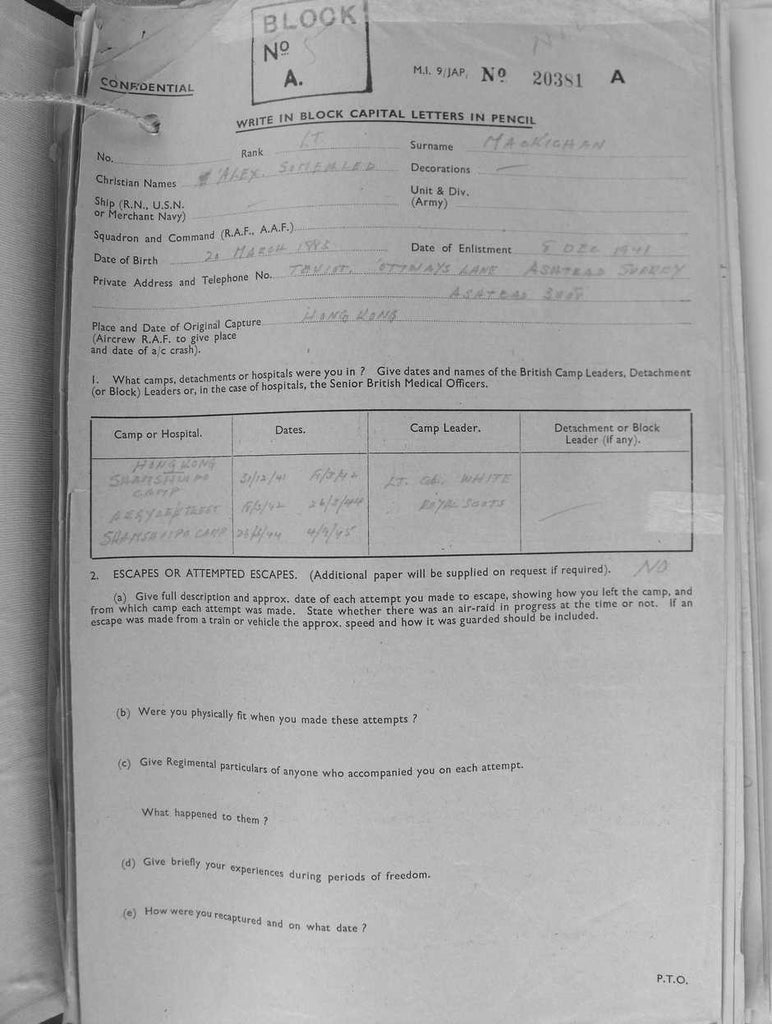 BLOCK
Nº 5
A.
CONFIDENTIAL
M.I. 9/JAP, Nº 20381 A
WRITE IN BLOCK CAPITAL LETTERS IN PENCIL
No. Rank LT. Surname MACKICHAN
Christian Names ALEX. SOMERLED Decorations —
Ship (R.N., U.S.N. or Merchant Navy) Unit & Div. (Army)
Squadron and Command (R.A.F., A.A.F.)
Date of Birth 20 MARCH Date of Enlistment 5 DEC 1941
Private Address and Telephone No. TEVIOT, OTTWAYS LANE ASHTEAD SURREY
ASHTEAD
Place and Date of Original Capture HONG KONG
(Aircrew R.A.F. to give place
and date of a/c crash).
1. What camps, detachments or hospitals were you in ? Give dates and names of the British Camp Leaders, Detachment
(or Block) Leaders or, in the case of hospitals, the Senior British Medical Officers.
Camp or Hospital. Dates. Camp Leader. Detachment or Block Leader (if any).
HONG KONG
SHAMSHUIPO CAMP 31/12/41 LT. COL. WHITE
ARGYLE STREET ROYAL SCOTS
SHAMSHUIPO CAMP
2. ESCAPES OR ATTEMPTED ESCAPES. (Additional paper will be supplied on request if required). NO
(a) Give full description and approx. date of each attempt you made to escape, showing how you left the camp, and
from which camp each attempt was made. State whether there was an air-raid in progress at the time or not. If an
escape was made from a train or vehicle the approx. speed and how it was guarded should be included.
(b) Were you physically fit when you made these attempts ?
(c) Give Regimental particulars of anyone who accompanied you on each attempt.
What happened to them ?
(d) Give briefly your experiences during periods of freedom.
(e) How were you recaptured and on what date ?
P.T.O.